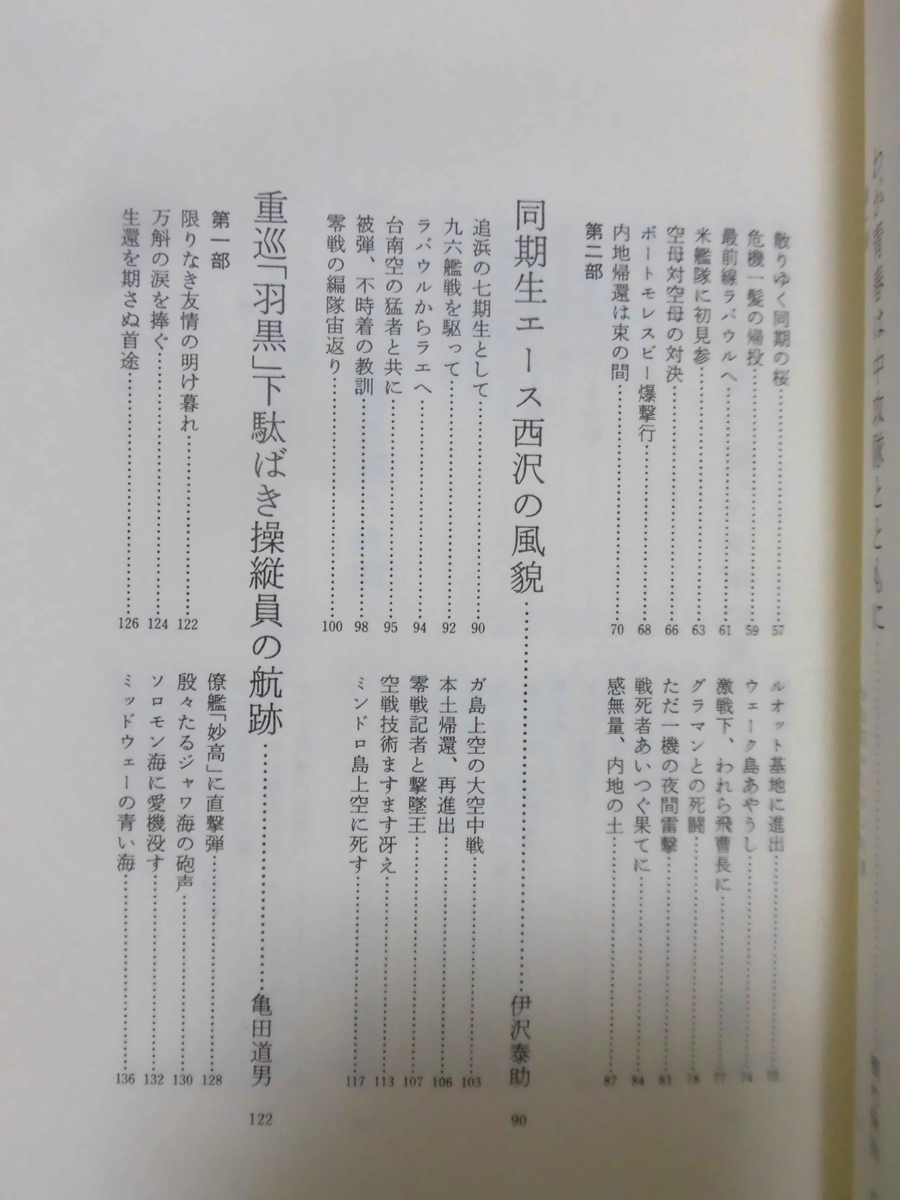 散りゆく同期の桜 57
危機一髪の帰投 59
最前線ラバウルへ 61
米艦隊に初見参 63
空母対空母の対決 66
ポートモレスビー爆撃行 68
内地帰還は束の間 70
第二部
ルオット基地に進出 72
ウェーク島あやうし 74
激戦下、われら飛曹長に 77
グラマンとの死闘 78
ただ一機の夜間雷撃 81
戦死者あいつぐ果てに 84
感無量、内地の土 87
同期生エース西沢の風貌 伊沢泰助 90
追浜の七期生として 90
九六艦戦を駆って 92
ラバウルからラエへ 94
台南空の猛者と共に 95
被弾、不時着の教訓 98
零戦の編隊宙返り 100
ガ島上空の大空中戦 103
本土帰還、再進出 106
零戦記者と撃墜王 107
空戦技術ますます冴え 113
ミンドロ島上空に死す 117
重巡「羽黒」下駄ばき操縦員の航跡 亀田道男 122
第一部
限りなき友情の明け暮れ 122
万斛の涙を捧ぐ 124
生還を期さぬ首途 126
僚艦「妙高」に直撃弾 128
殷々たるジャワ海の砲声 130
ソロモン海に愛機没す 132
ミッドウェーの青い海 136